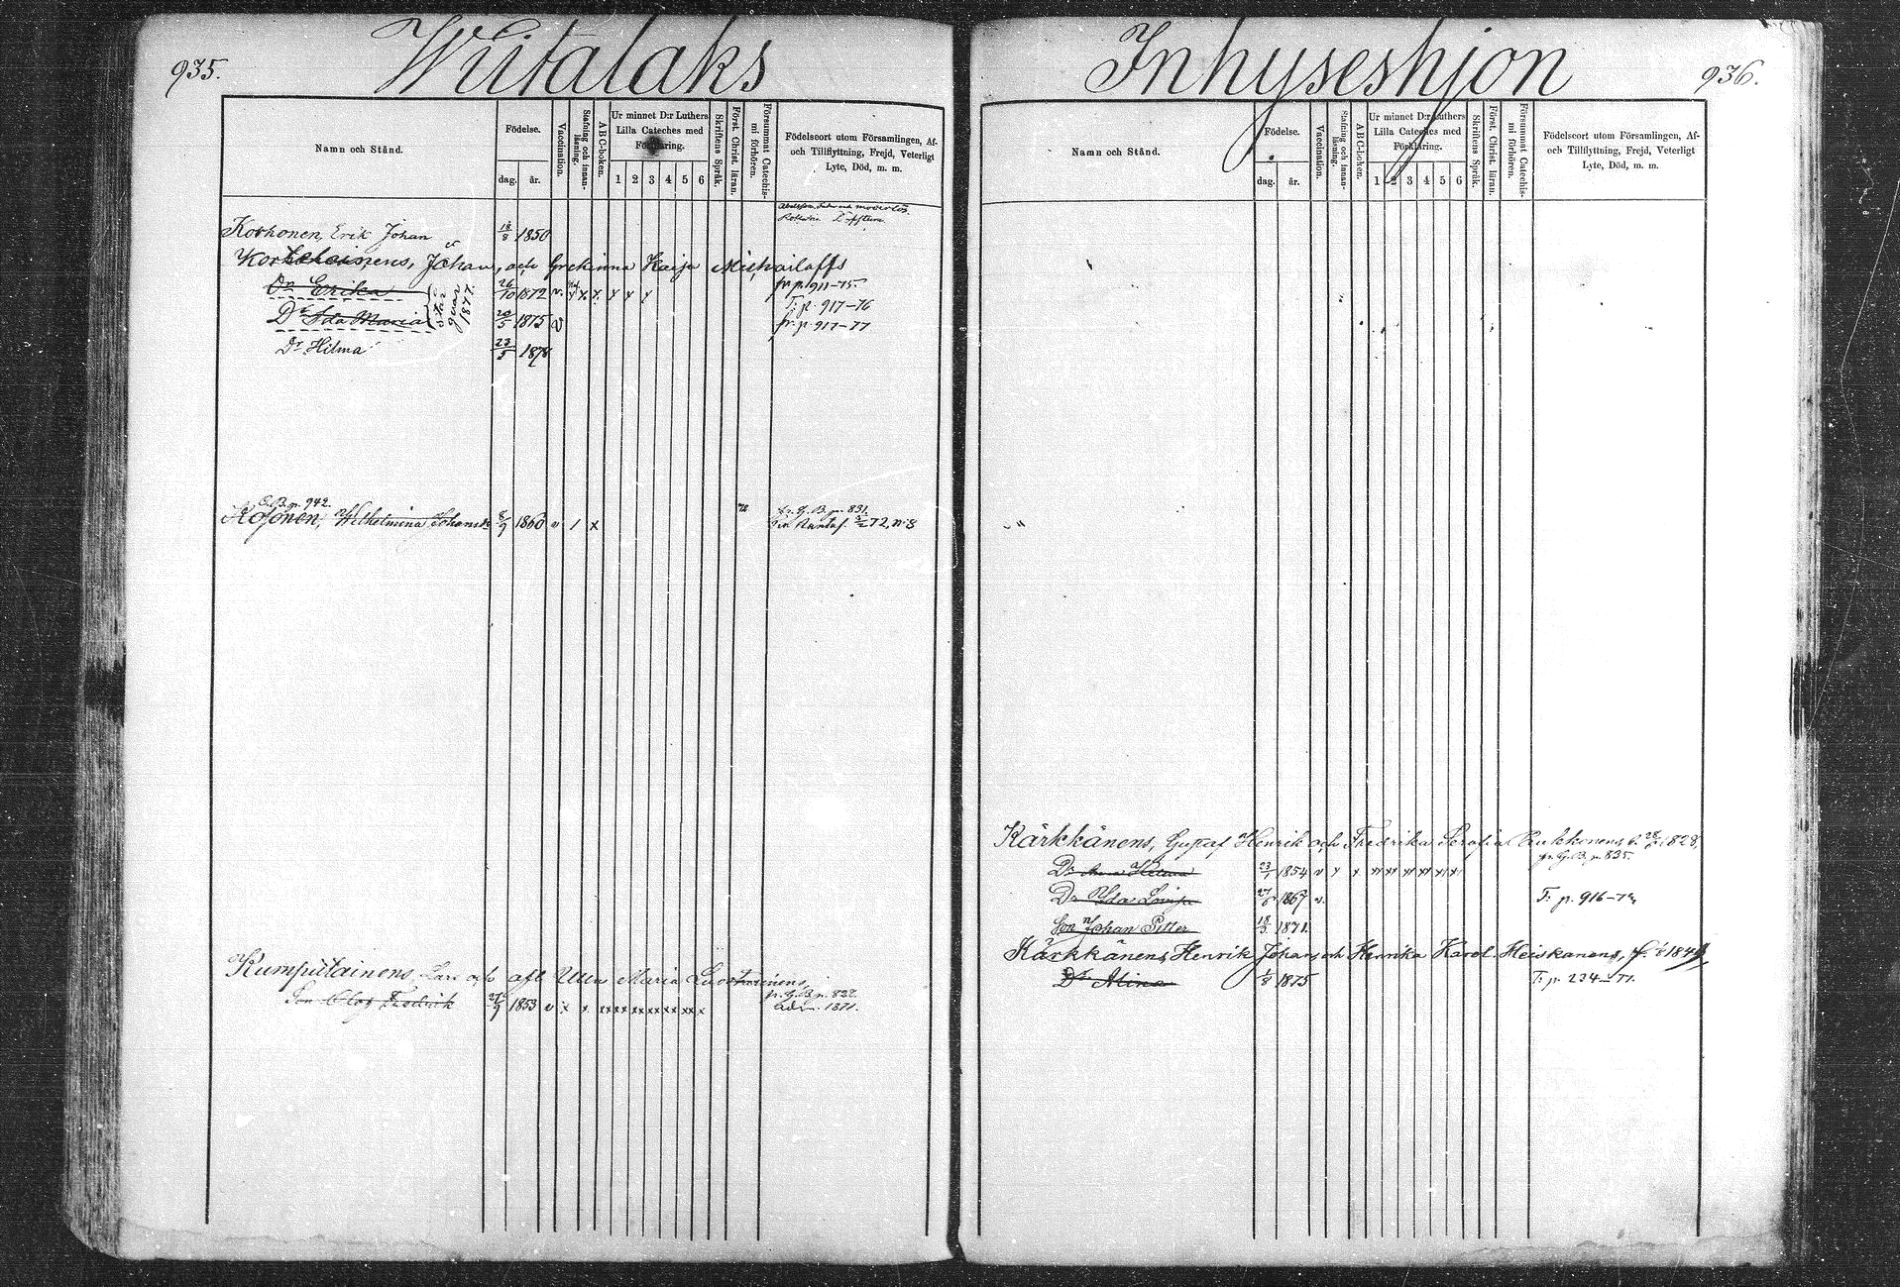 935.
Wiitalaks
Namn och Stånd.
Födelse.
dag.
år.
Vaccination.
Stafning och innanläsning.
ABC-boken.
Ur minnet D:r Luthers
Lilla Cateches med
Förklaring.
1 2 3 4 5 6
Skriftens Språk.
Först. Christ. läran.
Försummat Catechismi förhören.
Födelseort utom Församlingen, Af-
och Tillflyttning, Frejd, Veterligt
Lyte, Död, m. m.
Korhonen, Erik Johan 18/8 1850
Johan, och Grekinna Kaisa Michailoffs
Dr Erika 26/10 1872 v. fr. p. 911-75.
T. p. 917-76
Dr Ida Maria 20/5 1875 v fr. p. 917-77
1877.
Dr Hilma 23/5 1878
p. 942.
Kosonen, Wilhelmina Johansdr 8/9 1860 v / x 72 fr. G. B. p. 831.
72, n:8
Rumpütainens Lars och afl. Ulla Maria
fr. G. B. p. 832.
Son Olof Fredrik 1853 v x x xx xx xx xx xx xx x
Adm. 1871.
936.
Inhyseshjon
Namn och Stånd.
Födelse.
dag.
år.
Vaccination.
Stafning och innanläsning.
ABC-boken.
Ur minnet D:r Luthers
Lilla Cateches med
Förklaring.
1 2 3 4 5 6
Skriftens Språk.
Först. Christ. läran.
Försummat Catechismi förhören.
Födelseort utom Församlingen, Af-
och Tillflyttning, Frejd, Veterligt
Lyte, Död, m. m.
Kärkkänens, Gustaf Henrik och Fredrika Sofia Pukkonens f. 1828,
fr. G. B. p. 835.
Dr Anna Helena 23/1 1854 v x x xx xx xx xx xx xx
Dr Ida Lovisa 27/6 1867 v. T. p. 916-72
Son Johan Petter 18/3 1871.
Kärkkänens, Henrik Johan och Henrika Karol. Heiskanens, f.
Dr Alina 1/8 1875 T. p. 234-77.